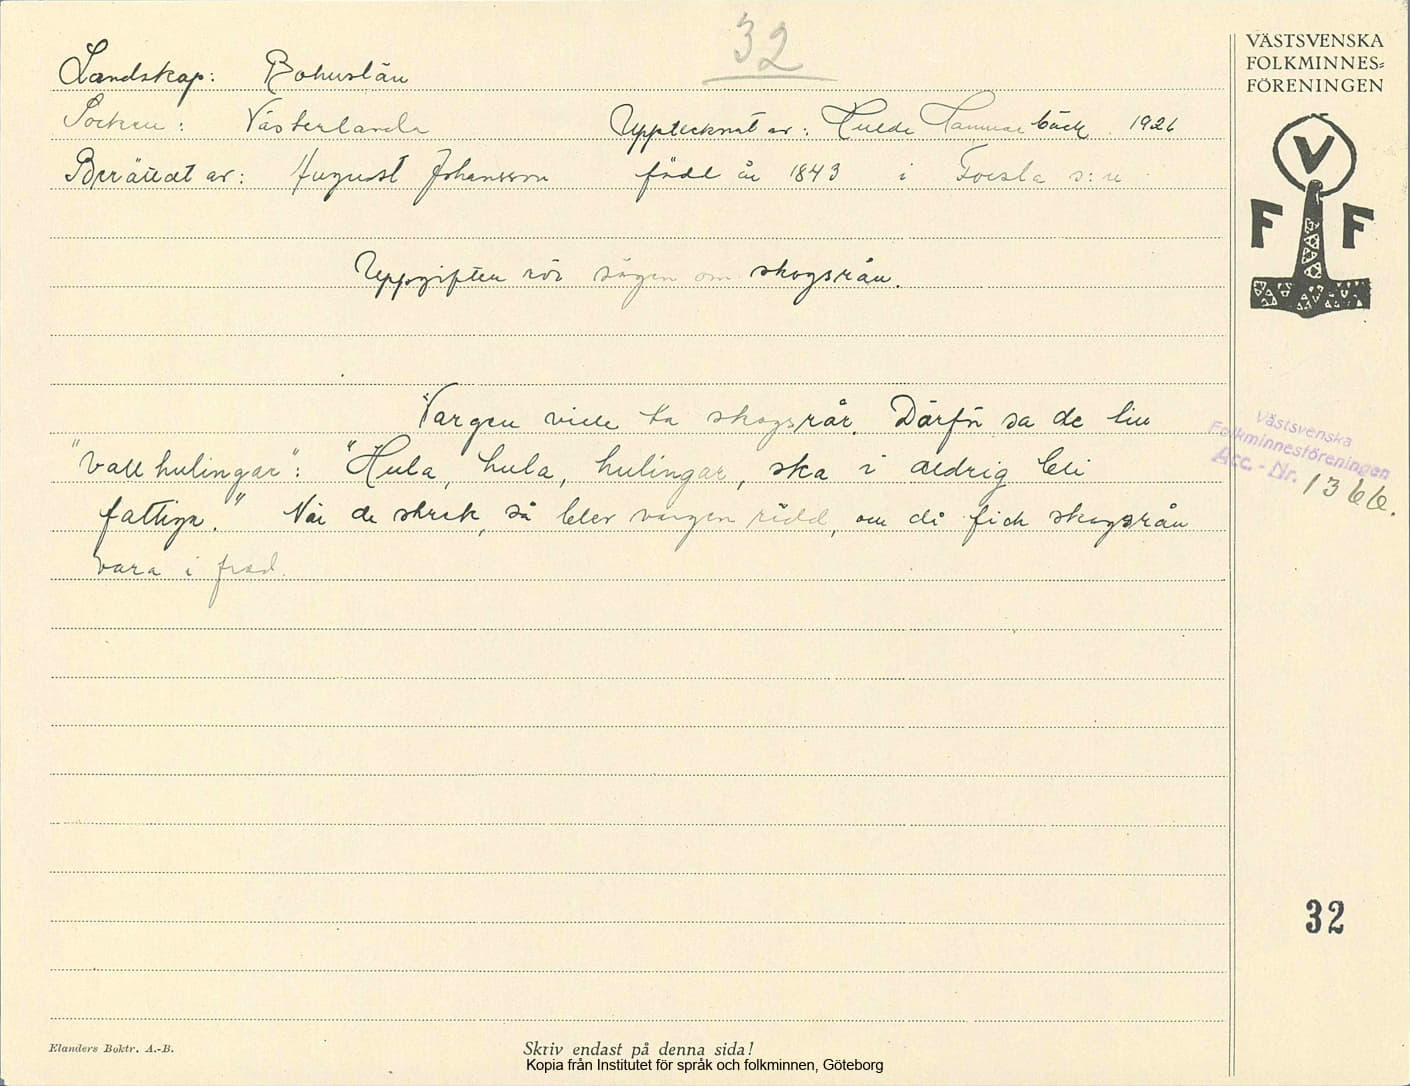 32
Landskap: Bohuslän
Socken: Västerlanda Upptecknat av: Hulda Hammarbäck. 1926
Berättat av: August Johansson född år 1843 i Foesla s:n
Uppgiften rör sägen om skogsrån.
"Vargen ville ta skogsrår. Därför sa de liu
"vallhulingar": "Hula, hula, hulingar, ska i aldrig bli
fattiga." När de skrek, så blev vargen rädd, om då fick skogsrån
vara i fred.
VÄSTSVENSKA
FOLKMINNES=
FÖRENINGEN
V
F F
Västsvenska
Folkminnesföreningen
Acc.-Nr. 1366.
32
Elanders Boktr. A.-B.
Skriv endast på denna sida!
Kopia från Institutet för språk och folkminnen, Göteborg